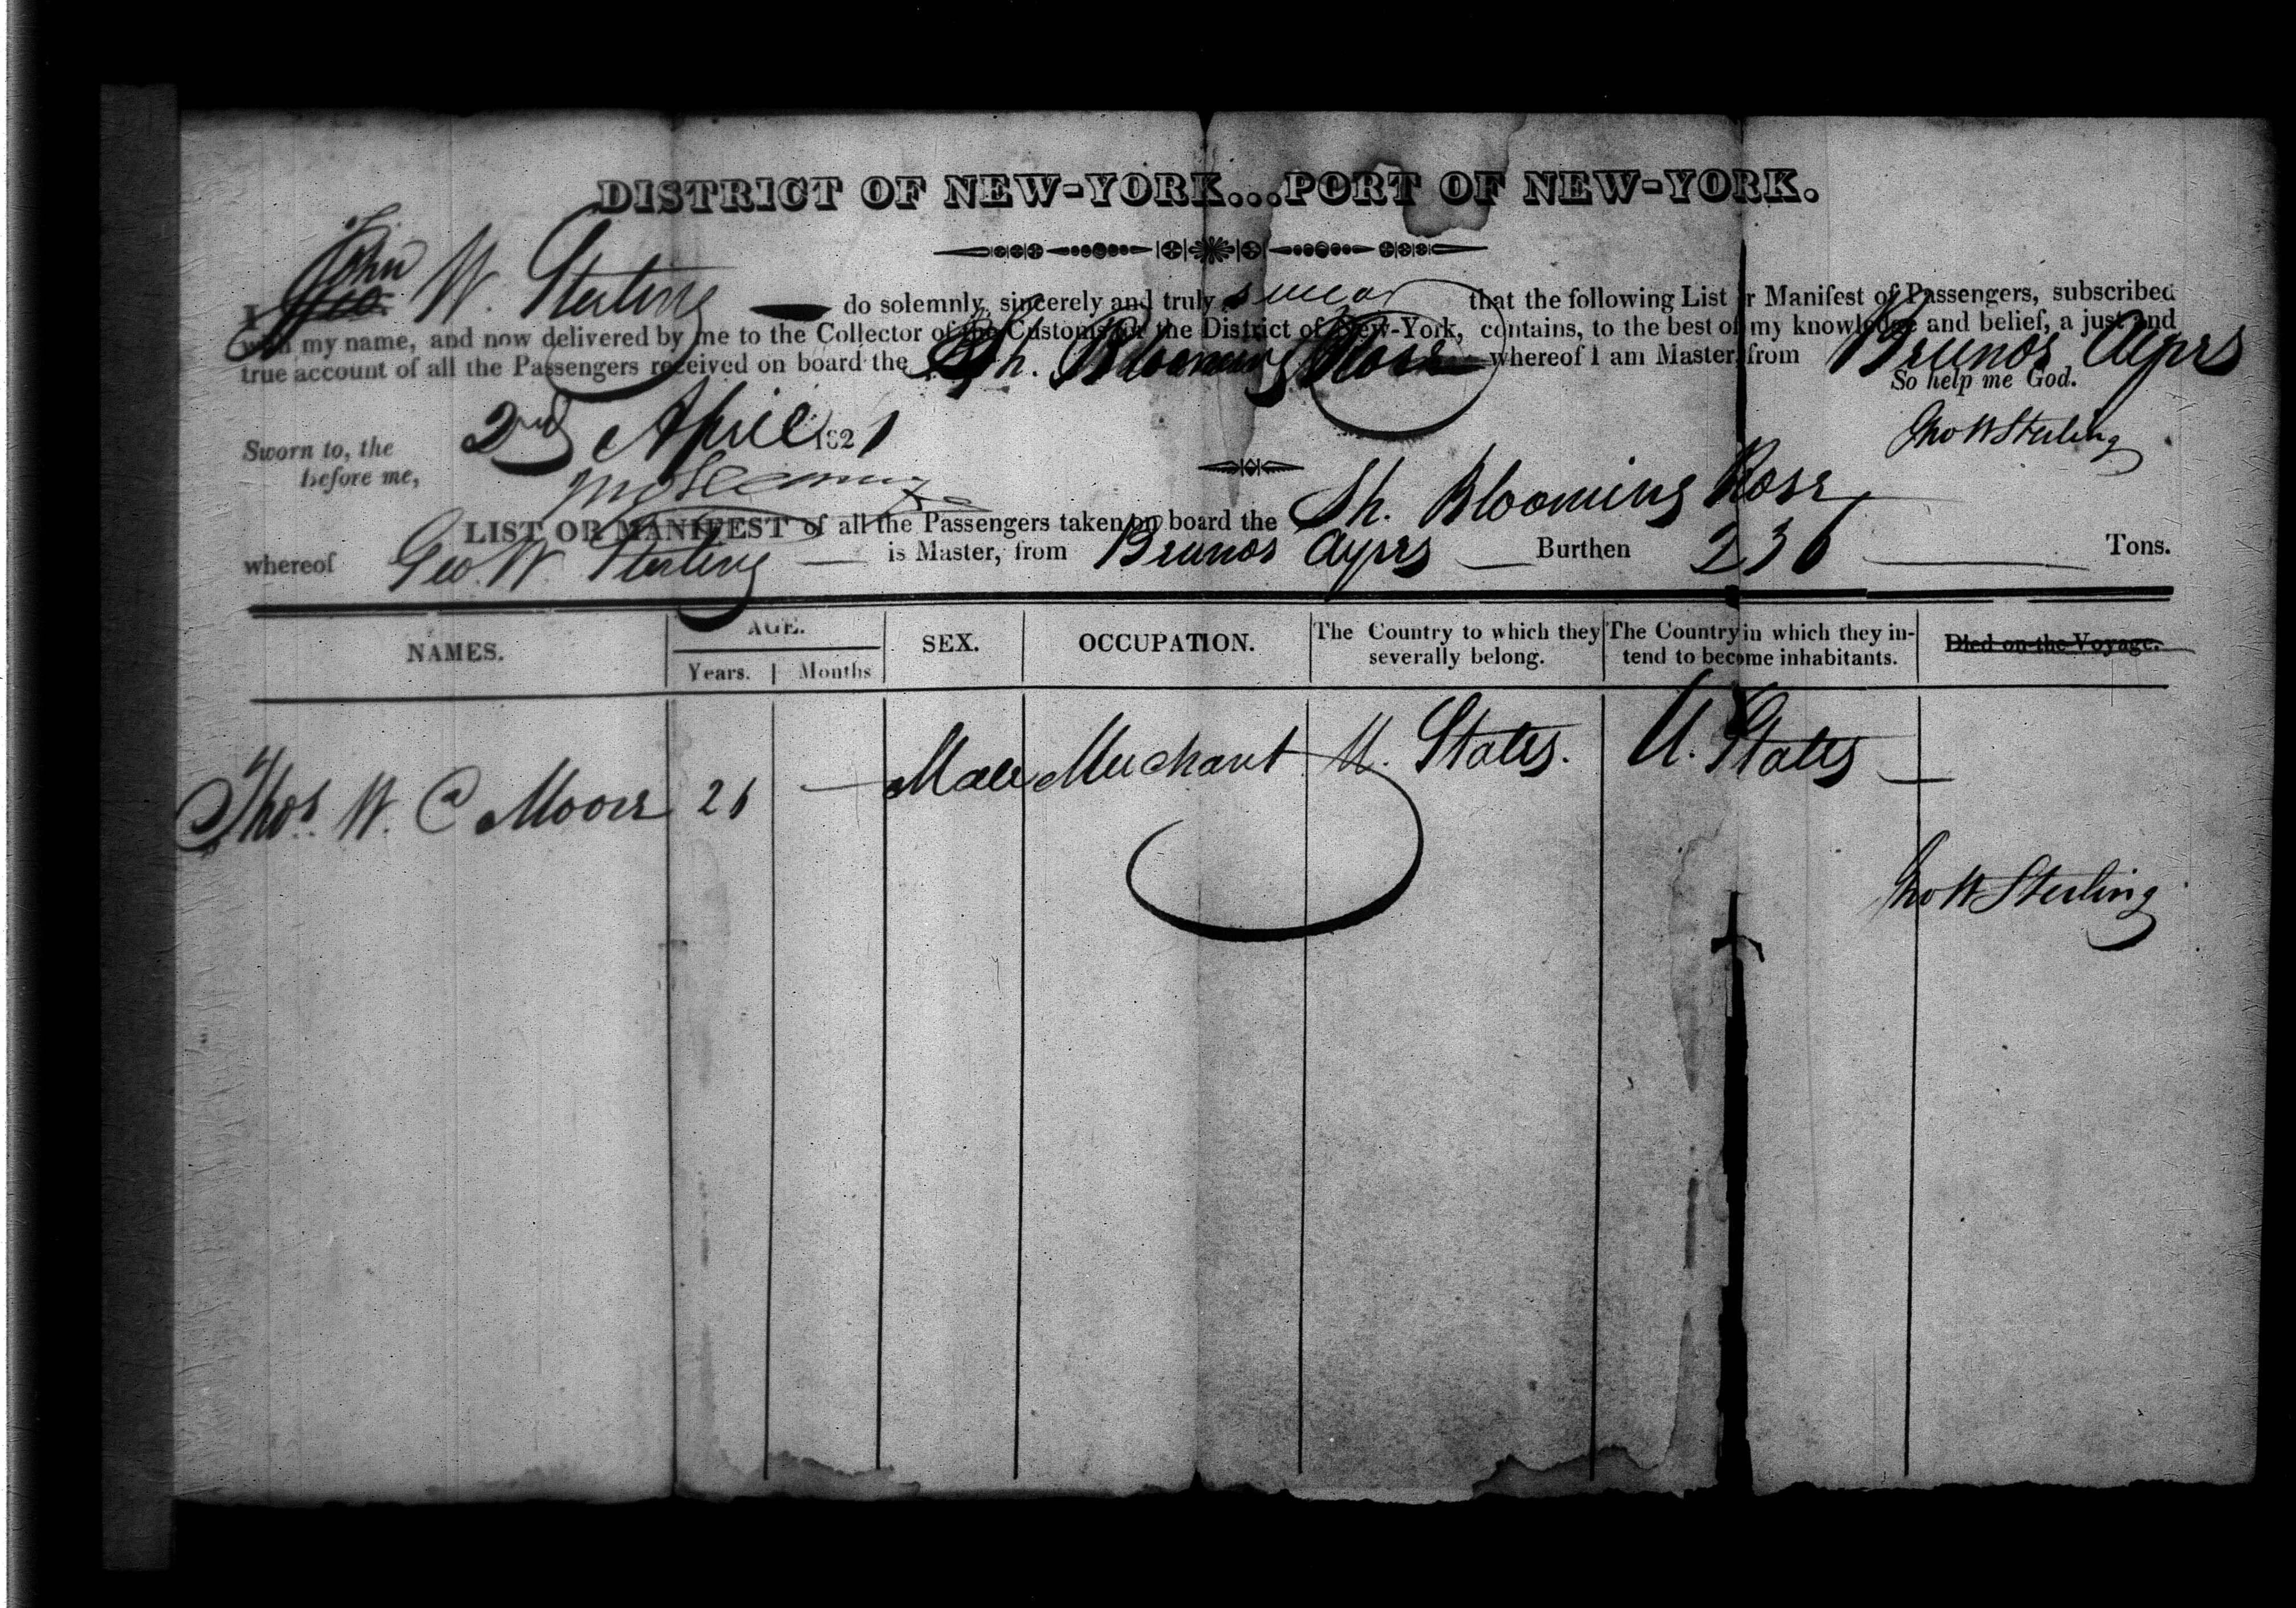 DISTRICT OF NEW-YORK...PORT OF NEW-YORK.
John
I Geo. W. Sterling do solemnly, sincerely and truly swear that the following List or Manifest of Passengers, subscribed
with my name, and now delivered by me to the Collector of the Customs for the District of New-York, contains, to the best of my knowledge and belief, a just and
true account of all the Passengers received on board the Sh. Blooming Rose whereof I am Master, from Beunos Ayres
So help me God.
Sworn to, the 2nd April 1821
Jno W Sterling
before me,
LIST OR MANIFEST of all the Passengers taken on board the Sh. Blooming Rose
whereof Geo. W. Sterling is Master, from Beunos Ayres Burthen 236 Tons.
NAMES. AGE. SEX. OCCUPATION. The Country to which they severally belong. The Country in which they intend to become inhabitants. Died on the Voyage.
Years. Months
Thos. W. C Moore 26 Male Merchant U. States. U. States
Jno W Sterling